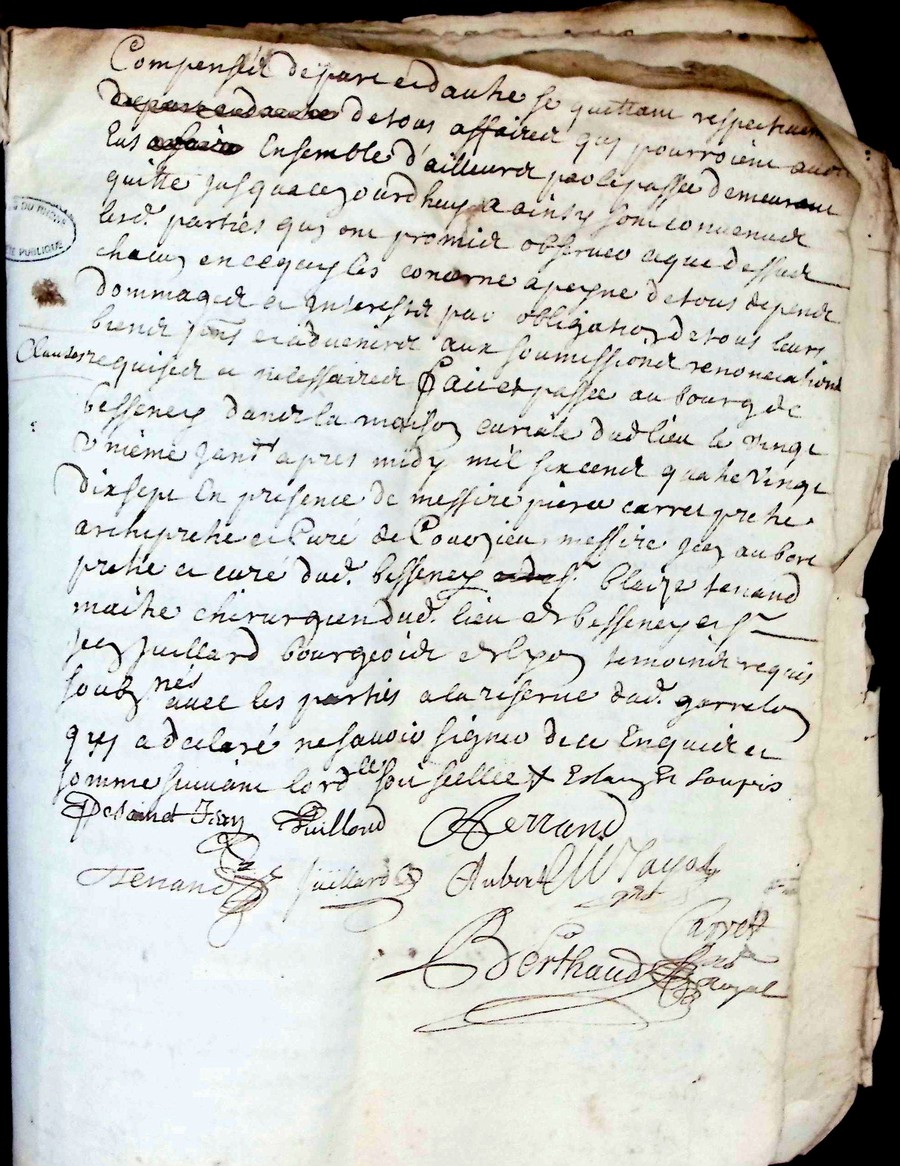 Compensés depart et dautre se quittant respectivem
depart et dautre detous affaires quj pourroient avoir
Eus affaire Ensemble d'ailleurs par le passé demeurant
quitte jusquacejourdhuy a ainsy sont convenues
lesd. parties quj ont promis observer ceque dessus
chacun en cequj les concerne apeyne detous depens
dommages et Interests par obligation detous leurs
biens pnts et advenirs aux soumissions renonciations
Clauses
requises et nécessaires fait et passé au bourg de
besseney dans la maison curiale dudlieu le vingt
unième janr apres midy mil six cens quatre vingt
dixsept En presence de messire piere carret pretre
archipretre et Curé de Courzieu messire jean aubert
pretre et curé dud. bessenay et de sr. blaize tenand
maitre chirurgien dud. lieu de besseney et sr
jean juillard bourgeois de lyon temoins requis
soubznés avec les parties a la reserve dud. garrelon
quj a declaré nesavoir signer de ce Enquis et
somme suivant lord.ce soit scellée
Desaint Jean Puillond Ferrand
Tenand juillard Aubert
Carret
Berthaud
no.re Royal
DU RHONE
PUBLIQUE